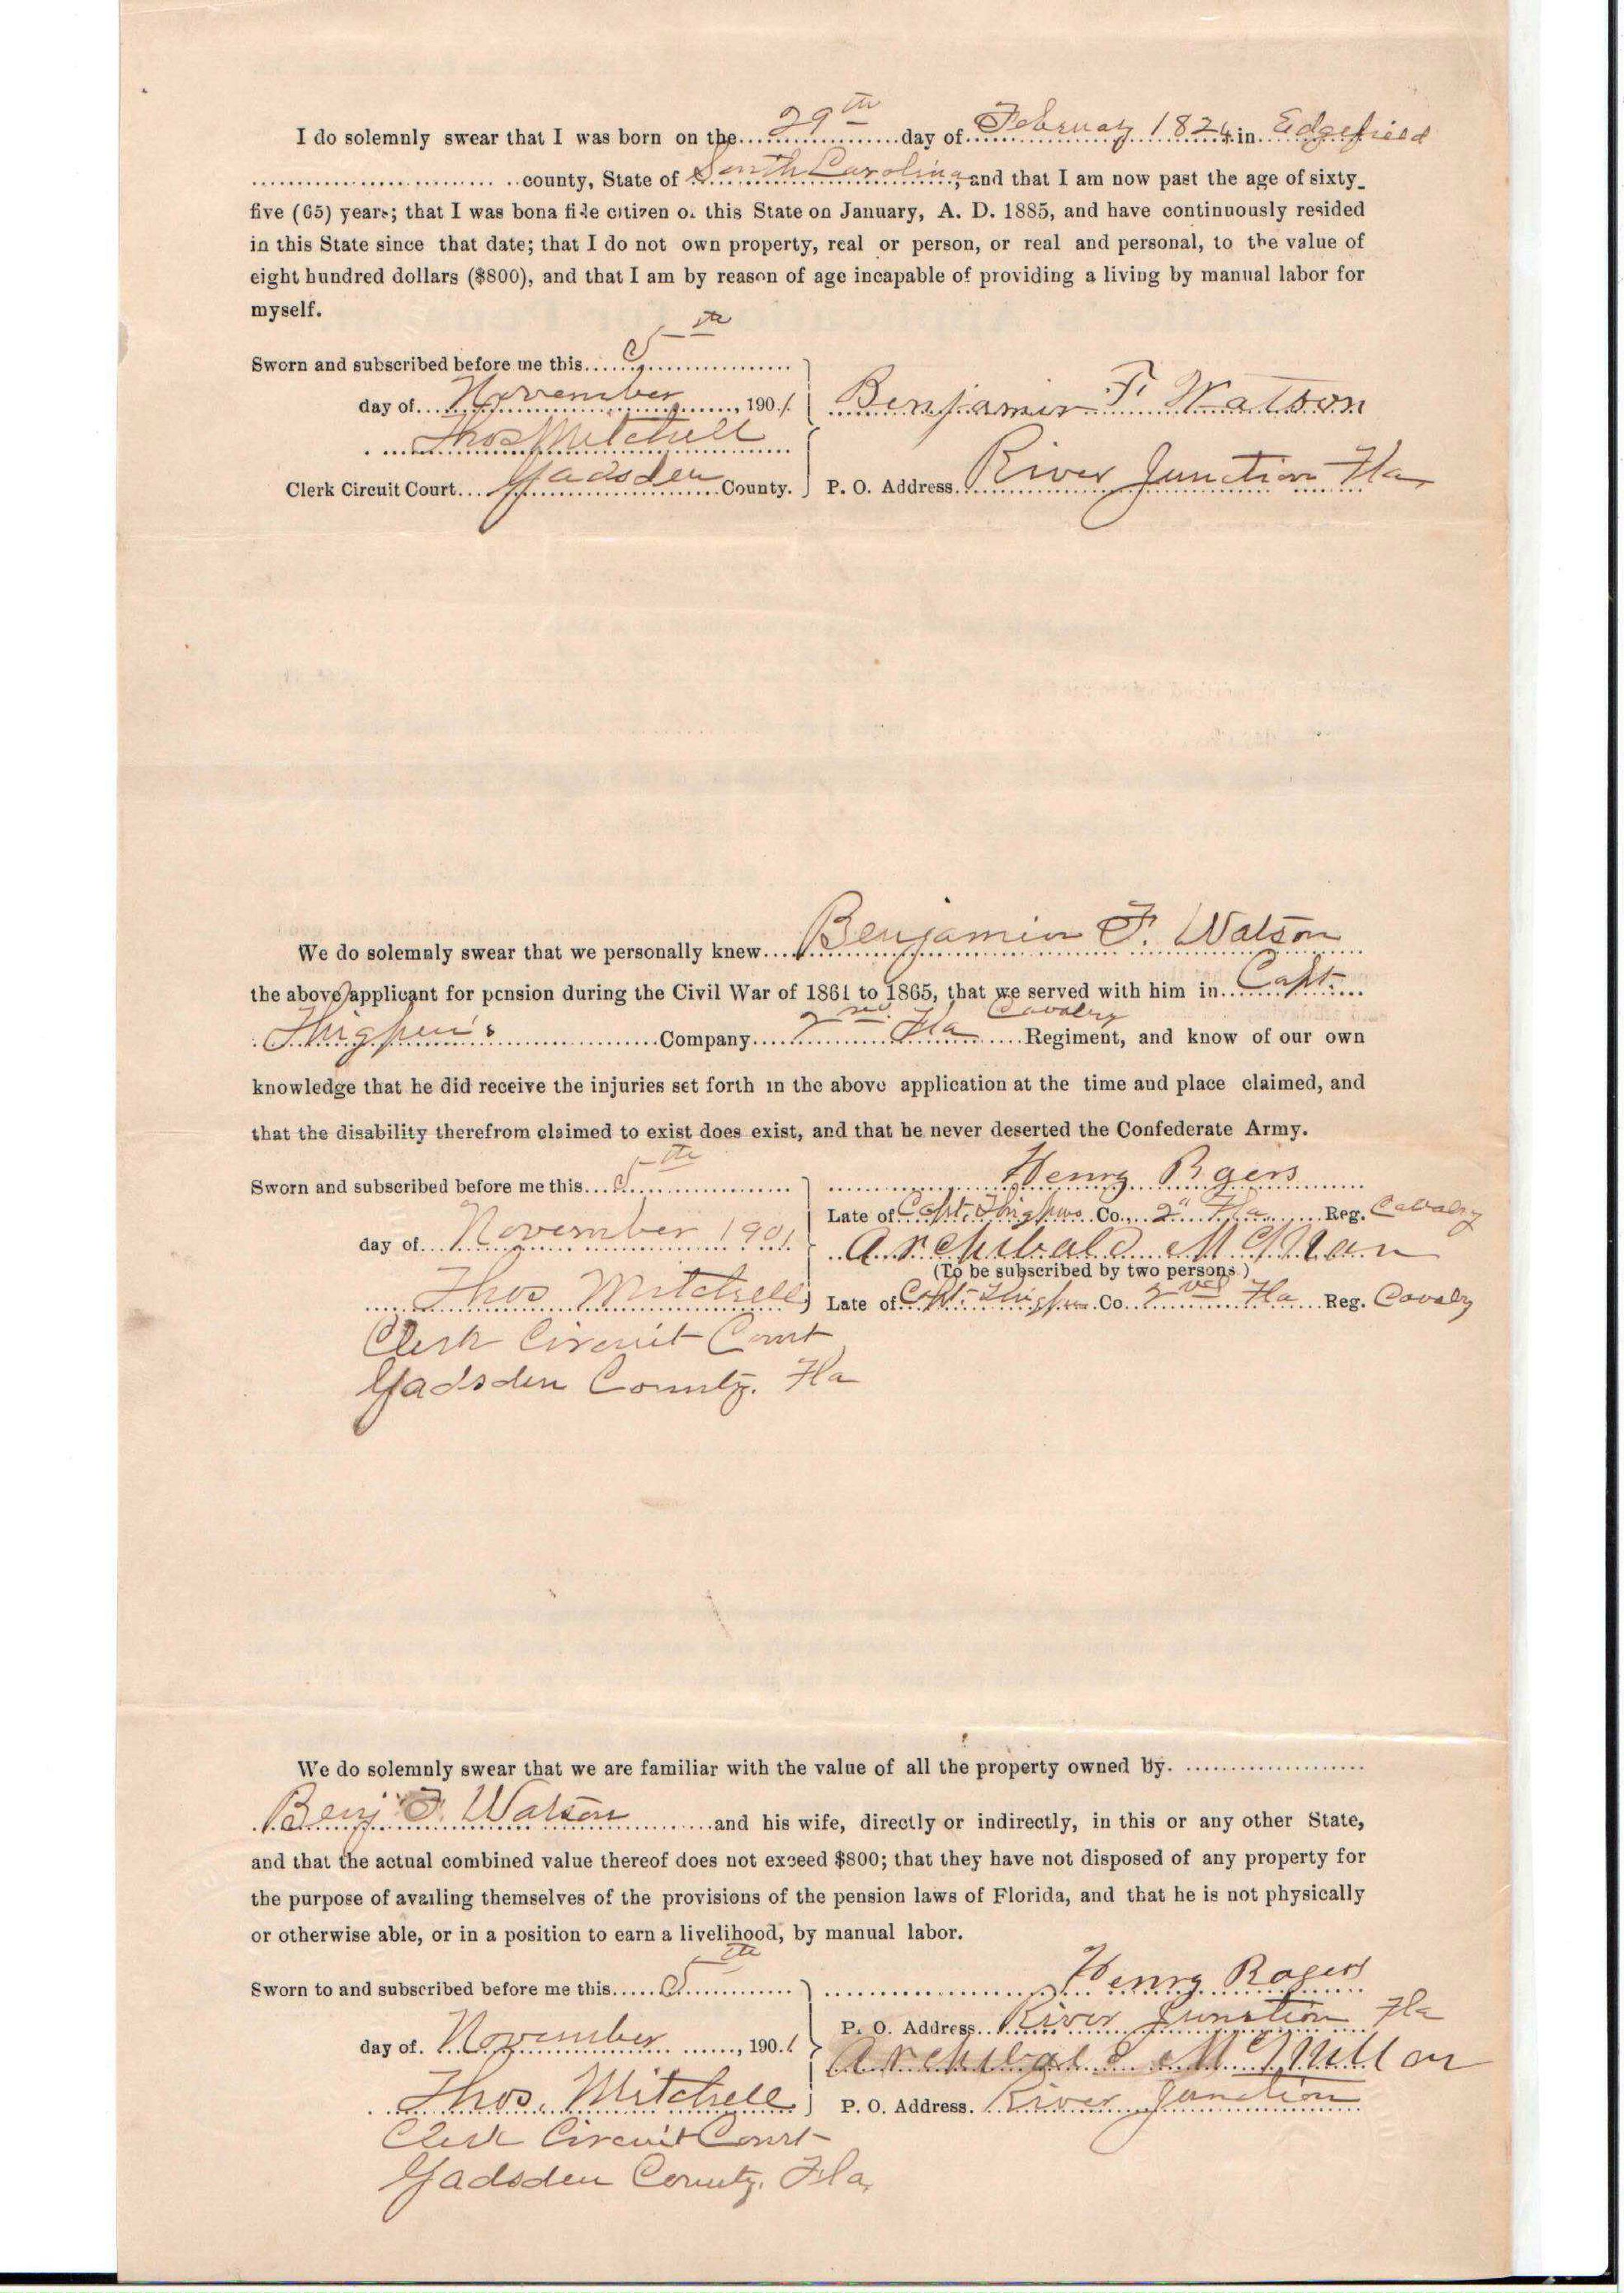 I do solemnly swear that I was born on the 29th day of February 1824 in Edgefield
county, State of South Carolina, and that I am now past the age of sixty-
five (65) years; that I was bona fide citizen of this State on January, A. D. 1885, and have continuously resided
in this State since that date; that I do not own property, real or person, or real and personal, to the value of
eight hundred dollars ($800), and that I am by reason of age incapable of providing a living by manual labor for
myself.
Sworn and subscribed before me this 5th
day of November, 1901 Benjamin F. Watson
Thos Mitchell
Clerk Circuit Court Gadsden County. P. O. Address River Junction Fla
We do solemnly swear that we personally knew Benjamin F. Watson
the above applicant for pension during the Civil War of 1861 to 1865, that we served with him in Capt.
Thigpen's Company 2nd Fla Cavalry Regiment, and know of our own
knowledge that he did receive the injuries set forth in the above application at the time and place claimed, and
that the disability therefrom claimed to exist does exist, and that he never deserted the Confederate Army.
Sworn and subscribed before me this 5th Henry Rgers
Late of Capt. Thigpens Co., 2" Fla Reg. Cavalry
day of November 1901 Archibald
(To be subscribed by two persons.)
Thos Mitchell Late of Capt. Thigpen Co. 2nd Fla Reg. Cavalry
Clerk Circuit Court
Gadsden County. Fla
We do solemnly swear that we are familiar with the value of all the property owned by
Benj F. Watson and his wife, directly or indirectly, in this or any other State,
and that the actual combined value thereof does not exceed $800; that they have not disposed of any property for
the purpose of availing themselves of the provisions of the pension laws of Florida, and that he is not physically
or otherwise able, or in a position to earn a livelihood, by manual labor.
Sworn to and subscribed before me this 5th Henry Rogers
P. O. Address River Junction Fla
day of November, 1901 Archibald McMillan
Thos. Mitchell P. O. Address. River Junction
Clerk Circuit Court
Gadsden County. Fla.